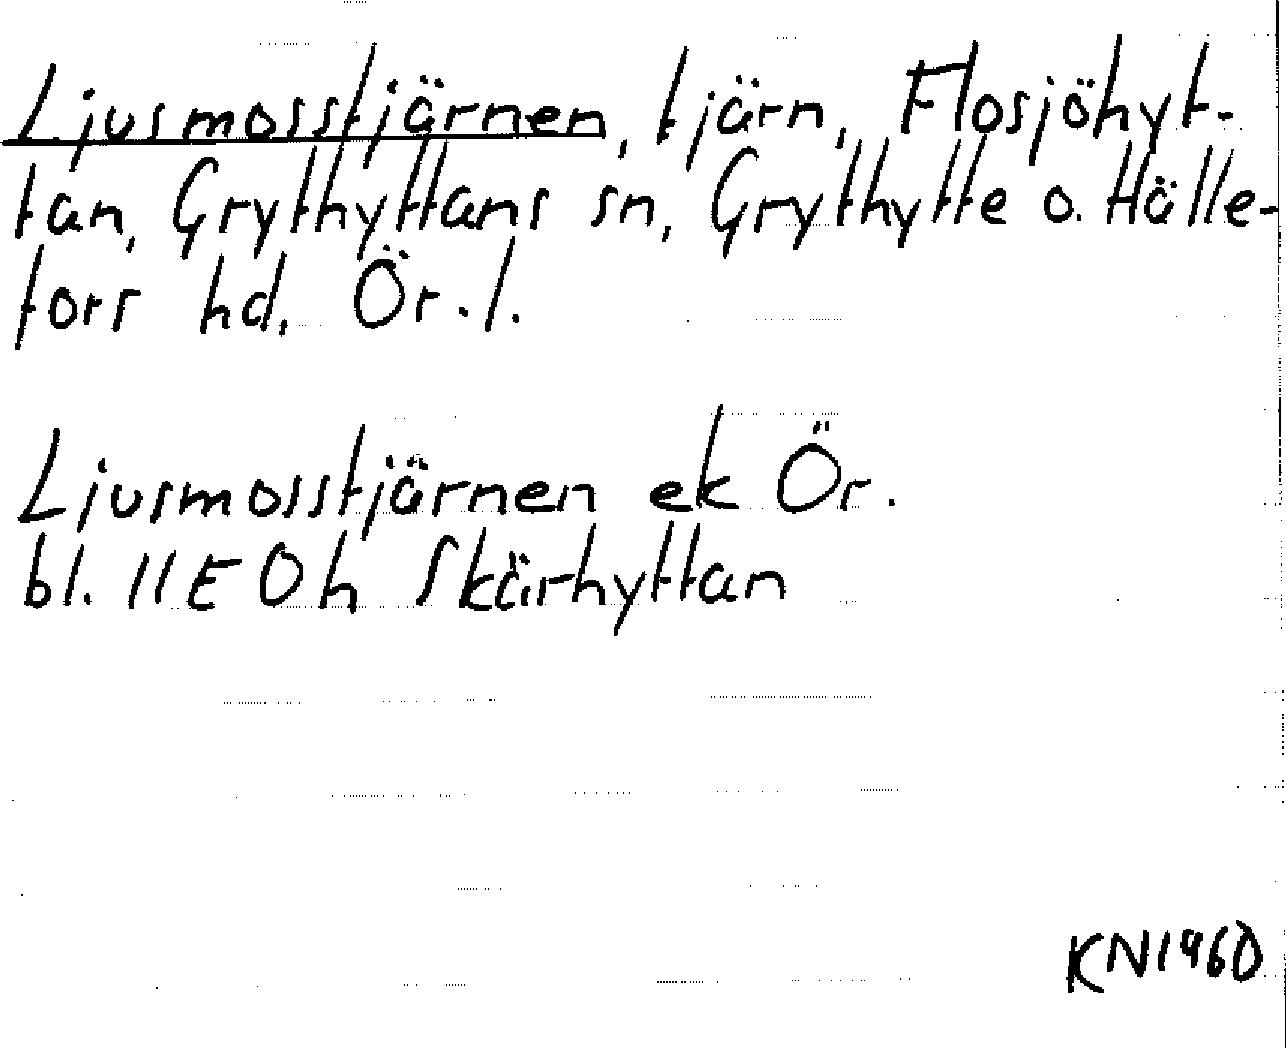 Ljusmosstjärnen, tjärn, Flosjöhyt-
tan, Grythyttans sn, Grythytte o. Hälle-
fors hd, Ör. l.
Ljusmosstjärnen ek Ör.
bl. 11E 0h Skärhyttan
KN1960